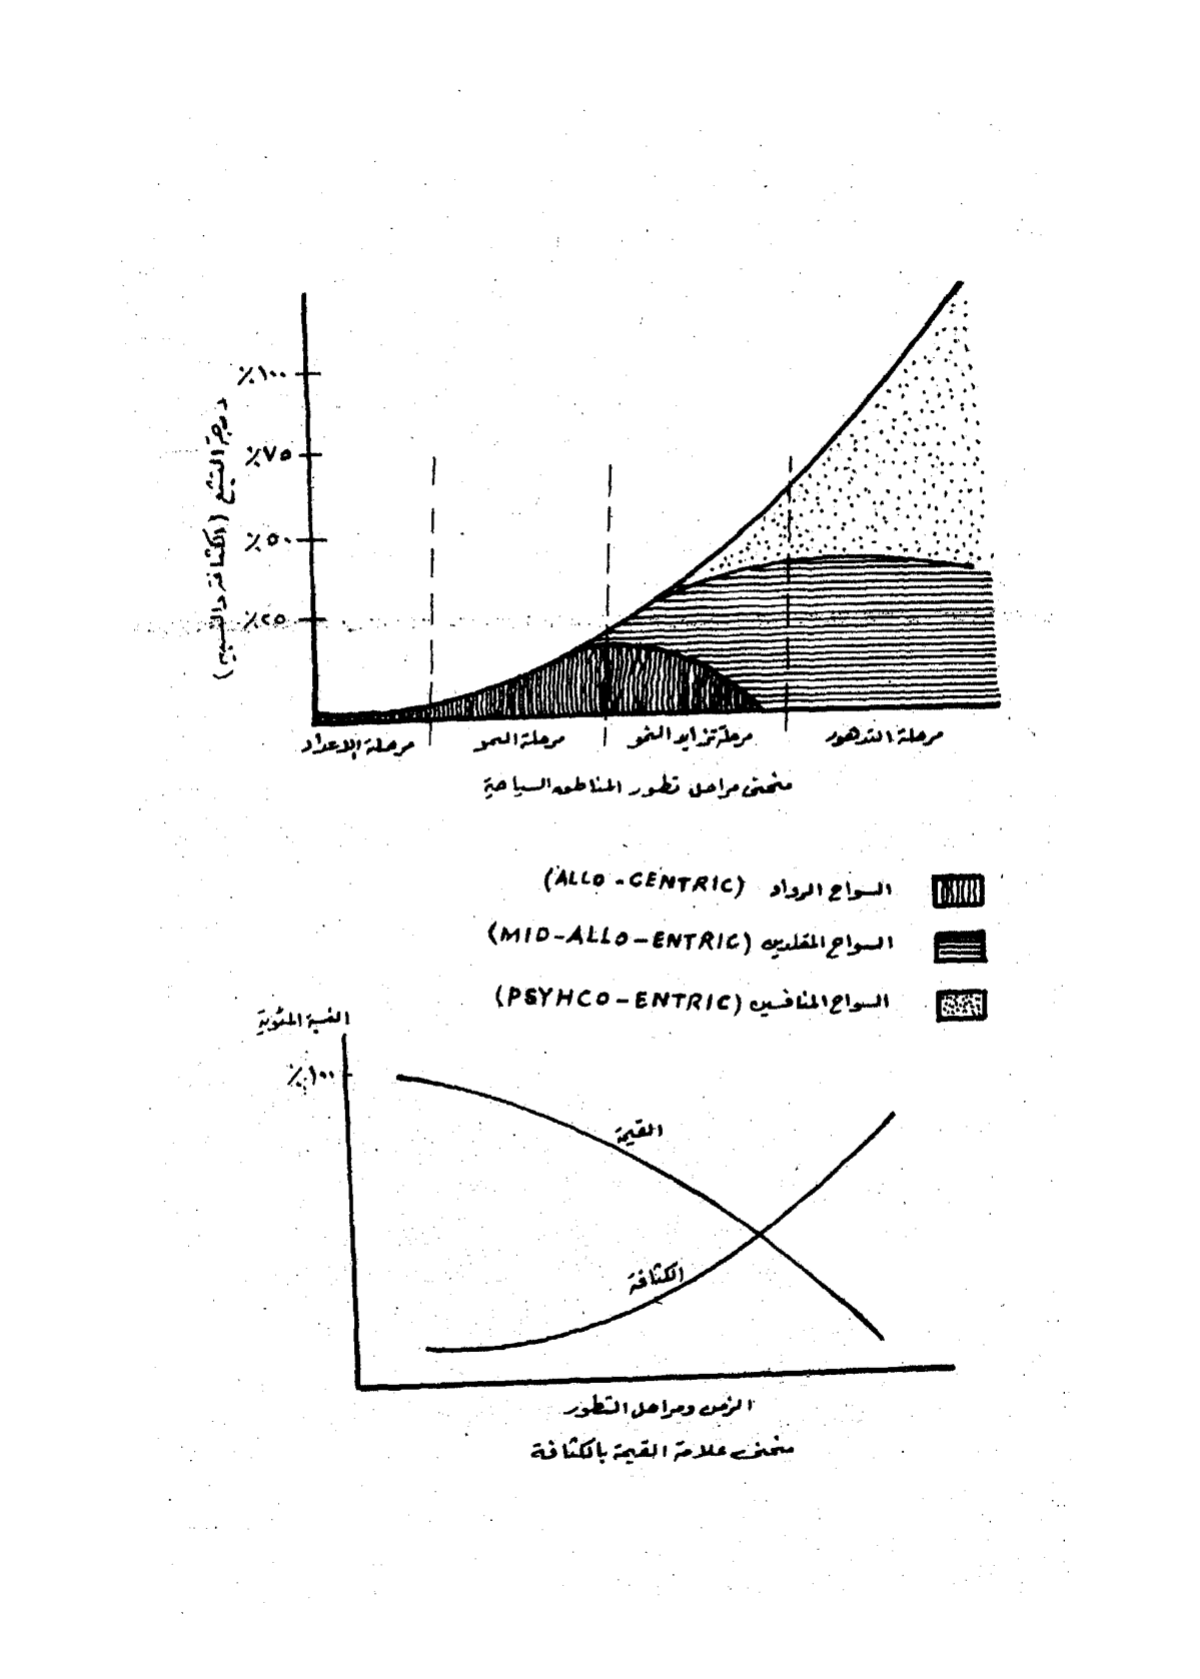 ٪١٠٠
٪٧٥
٪٥٠
٪٢٥
درجة التشبع (الكثافة والتسييم)
مرحلة الاعداد
مرحلة النمو
مرحلة تزايد النمو
مرحلة التدهور
منحنى مراحل تطور المناطق السياحية
السواح الرواد (ALLO-CENTRIC)
السواح المقلدين (MID-ALLO-ENTRIC)
السواح المنافسين (PSYHCO-ENTRIC)
النسبة المئوية
٪١٠٠
القيمة
الكثافة
الزمن ومراحل التطور
منحنى علاقة القيمة بالكثافة